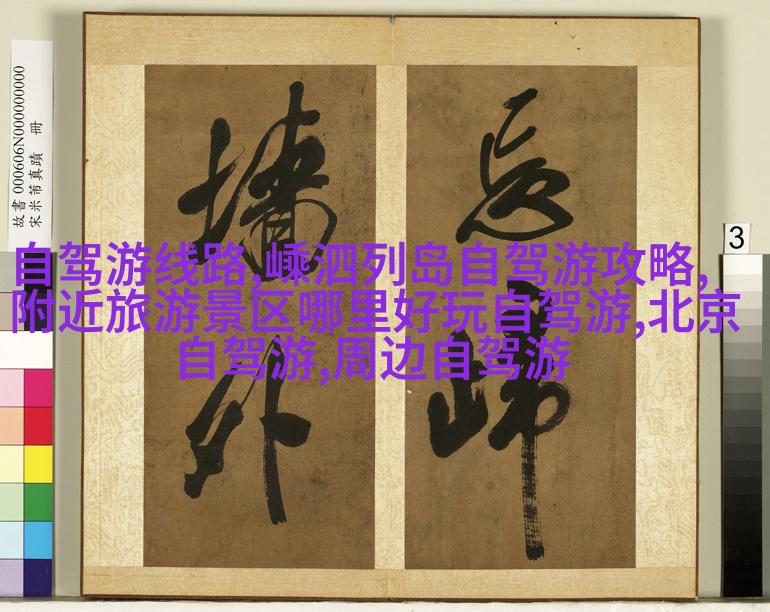 自驾游线路,嵊泗列岛自驾游攻略,
附近旅游景区哪里好玩自驾游,北京
自驾游,周边自驾游
忘歸
墙外
故書 000606N000000000
宋米芾真蹟 冊
3